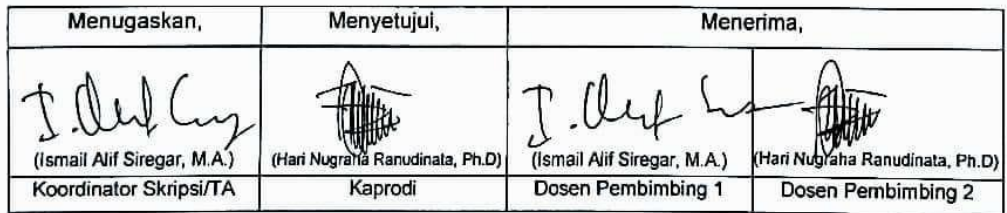 Menugaskan,
Menyetujui,
Menerima,
(Ismail Alif Siregar, M.A.)
(Hari Nugraha Ranudinata, Ph.D)
(Ismail Alif Siregar, M.A.)
(Hari Nugraha Ranudinata, Ph.D)
Koordinator Skripsi/TA
Kaprodi
Dosen Pembimbing 1
Dosen Pembimbing 2